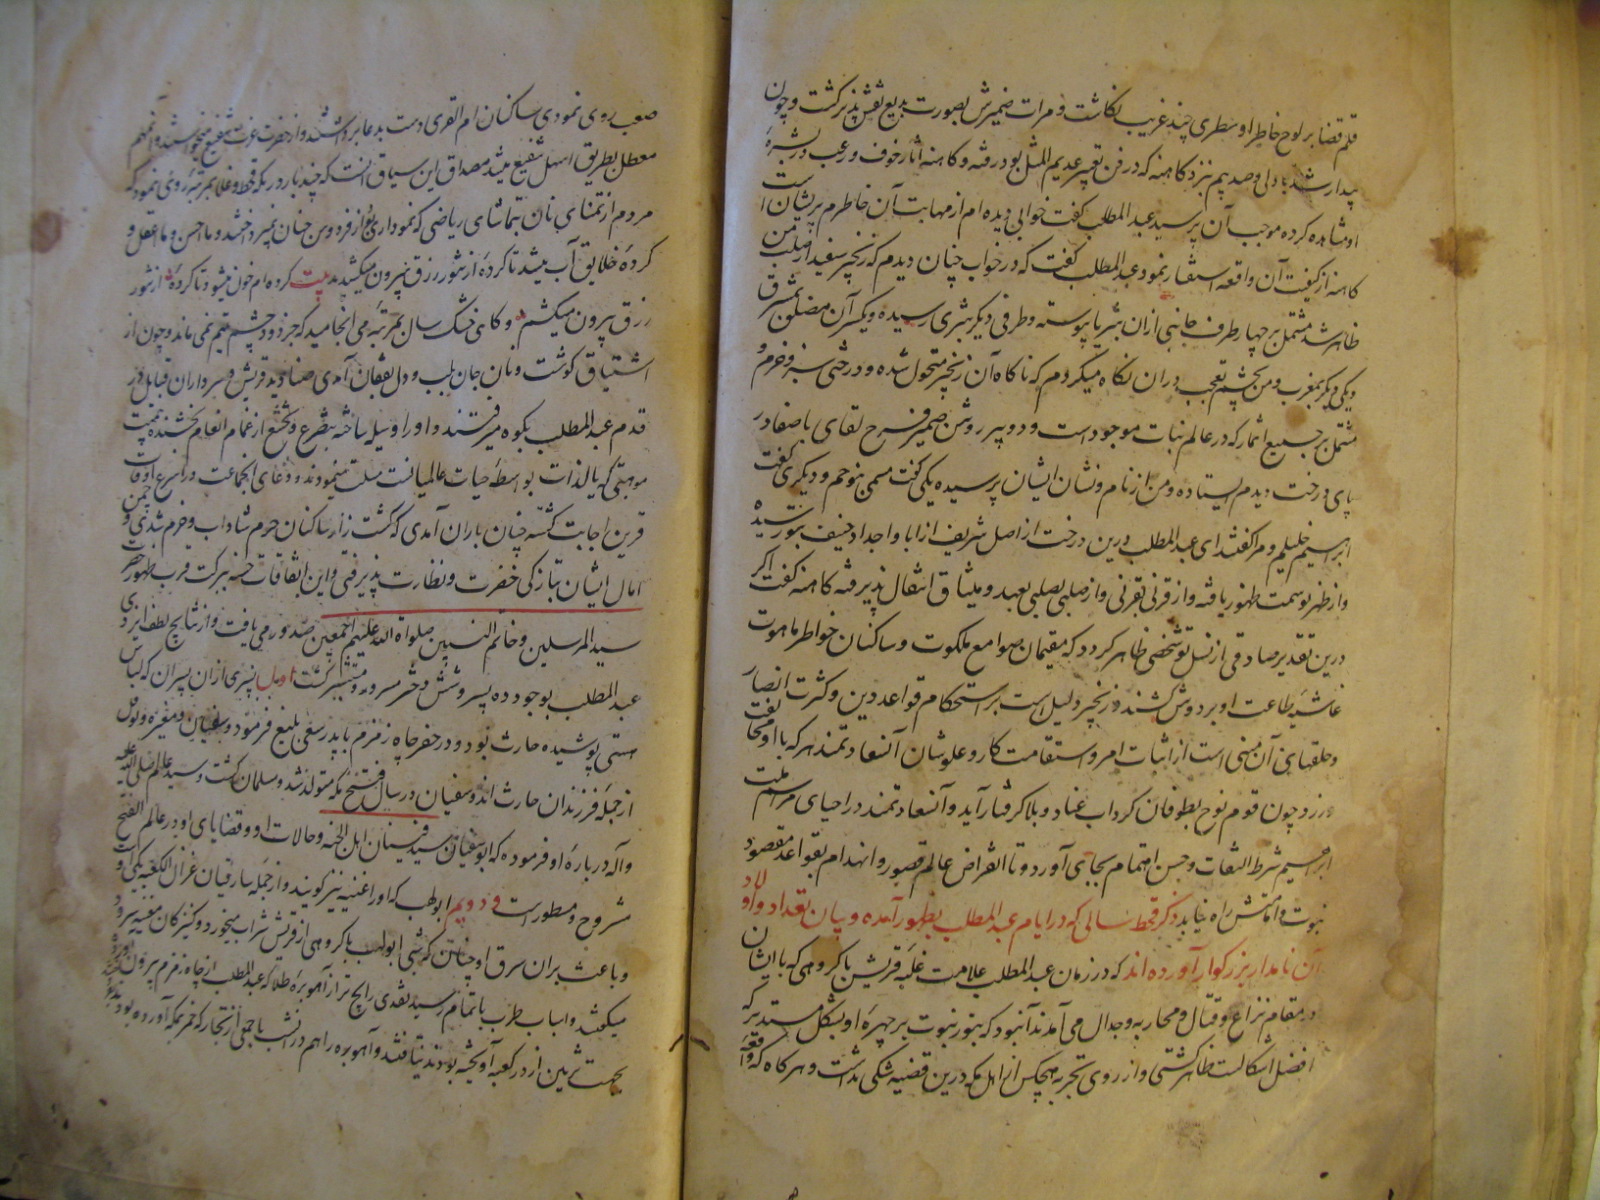 قلم قضا بر لوح خاطر او سطری چند غریب نکاشت و مرات ضمیرش بصورت بدیع نقش پذیر کشت و چون
بیدار شد با دلی وصدبیم نزد کاهنه که در فن تعبیر عدیم المثل بود رفته و کاهنه اثار خوف و رعب در بشره
او مشاهده کرده موجب آن پرسید عبد المطلب کفت خوابی دیده ام از مهابت آن خاطرم پریشان است
کاهنه از کیفیت آن واقعه استفسار نمود عبد المطلب کفت که در خواب چنان دیدم که زنجیر سفید از صلب من
ظاهر شد مشتمل بر چهار طرف جانبی ازان بثریا پیوسته و طرفی دیکر بثری رسیده ویکسر آن متصل بمشرق
ویکی دیکر بمغرب ومن بچشم تعجب دران نکاه میکردم که ناکاه آن زنجیر متحول شده و درختی سبز و خرم و
مشتمل بر جمیع اثمار که در عالم نبات موجودست و دو پیر روشن ضمیر فرخ لقای باصفا در
پای درخت دیدم ایستاده ومن از نام و نشان ایشان پرسیده یکی کفت مسمی بنوحم و دیکری کفت
ابرهیم خلیلم و مرا کفتند ای عبد المطلب این درخت از اصل شریف از ابا و اجداد حنیف بتو رسیده
و از ظهر تو سمت ظهور یافته و از قرنی بقرنی و از صلبی بصلبی بعهد و میثاق انتقال پذیرفته کاهنه کفت اکر
درین تقدیر صادقی از نسل تو شخصی ظاهر کردد که مقیمان صوامع ملکوت و ساکنان خواطر ناسوت
غاشیه طاعت او بر دوش کشند و زنجیر دلیل است بر استحکام قواعد دین و کثرت انصار
و حلقهای آن منبی است از اثبات امر و استقامت کار و علو شان آنسعادتمند هر که با او مخالفت
ورزد چون قوم نوح بطوفان کرداب عناد و بلا کرفتار آید و آنسعادتمند در احیای مراسم ملت
ابرهیم شرط التفات و حسن اهتمام بجای آورد و تا انقراض عالم قصور و انهدام بقواعد مقصود
نبوت و امامتش راه نیابد ذکر قحط سالی که در ایام عبد المطلب بظهور آمده و بیان تعداد اولاد
آن نامدار بزرکوار آورده اند که در زمان عبد المطلب علامت غلبه قریش با کروهی که با ایشان
در مقام نزاع و قتال و محاربه و جدال می آمدند آنبود که بنور نبوت بر چهره او بشکل مستدیر که
افضل اشکالست ظاهر کشتی و از روی تجربه هیچکس از اهل مکه درین قضیه شکی نداشت و هر کاه که واقعه
صعب روی نمودی ساکنان ام القری دست بدعا برداشتند و از حضرت عزت شفیع میخواستند و آن مهم
معطل بطریق اسهل شفیع میشد مصداق این سیاق آنست که چند بار در مکه قحط و غلا بمرتبه روی نمود که
مردم از تمنای نان بتماشای ریاضی که نموداری از فردوس جنان نمیپرداختند و ما احسن و ما قیل و
کرده خلایق آب میشد تا کرده از تنور رزق بیرون میکشیدند بیت کرده ام خون میشود تا کرده از تنور
رزق بیرون میکشم و کاهی خشک سال بمرتبه می انجامید که جز دو چشم یتیم نمی ماند و چون از
اشتیاق کوشت و نان جان بلب و دل بفغان آمدی صنادید قریش و سرداران قبایل در
قدم عبد المطلب بکوه میرفتند و او را وسیله ساخته بتضرع و تخشع از غمام انعام بخشنده بیمنت
موهبتی که بالذات بواسطه حیات عالمیانست مسئلت مینمودند و دعای انجماعت در اسرع اوقات
قرین اجابت کشته چنان باران آمدی که کشت زار ساکنان حرم شاداب و خرم شدی و چمن
امال ایشان بتازکی خضرت و نظارت پذیرفتی و این اتفاقات حسنه ببرکت قرب ظهور حضرت
سید المرسلین و خاتم النبیین صلواة الله علیهم اجمعین صدور می یافت و از نتایج لطف ایزدی
عبد المطلب بوجود ده پسر و شش دختر مسرور و مستبشر کشت اول پسری ازان پسران که لباس
هستی پوشیده حارث بود و در حفر چاه زمزم با پدر سعی بلیغ فرمود و سفیان و مغیره و نوفل
از جمله فرزندان حارث اند و سفیان در سال فتح مکه متولد شد و مسلمان کشت و سید عالم صلی الله علیه
و آله در باره او فرموده که ابو سفیان سید فتیان اهل الجنه و حالات او و قضایای او در عالم الفتح
مشروح و مسطور است و دویم ابو لهب که او را عتبه نیز کویند و از جمله سارقان غزال الکعبه یکی او
و باعث بران سرق او چنان که شبی ابو لهب با کروهی از قریش شراب میخورد و کنیزکان مغنیه سرود
میکفتند و اسباب طرب باتمام رسید نقدی رایج تر از آهو بره طلا که عبد المطلب از چاه زمزم بیرون آورده
بجهت تزیین از در کعبه آویخته بودند نیافتند و آهو بره را هم در انشب با جمعی از تجار که خمر بمکه آورده بودند